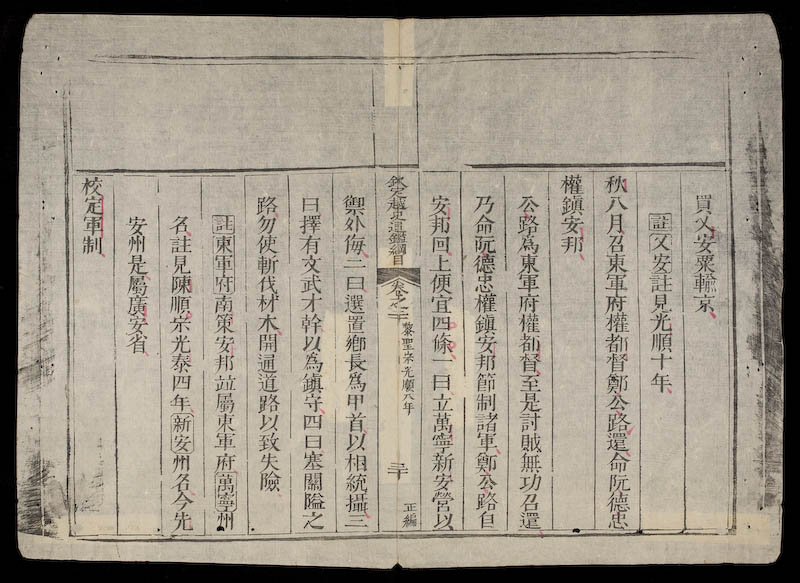 買乂安粟輸京
註乂安註見光順十年
秋八月召東軍府權都督鄭公路還命阮德忠
權鎮安邦
公路為東軍府權都督至是討賊無功召還
乃命阮德忠權鎮安邦節制諸軍鄭公路自
安邦回上便宜四條一曰立萬寧新安營以
欽定越史通鑑綱目
卷之二
黎聖宗光順八年
二十
正編
禦外侮二曰選置鄉長為甲首以相統攝三
曰擇有文武才幹以為鎮守四曰塞關隘之
路勿使斬伐材木開通道路以致失險
註東軍府南策安邦並屬東軍府萬寧州
名註見陳順宗光泰四年新安州名今先
安州是屬廣安省
校定軍制